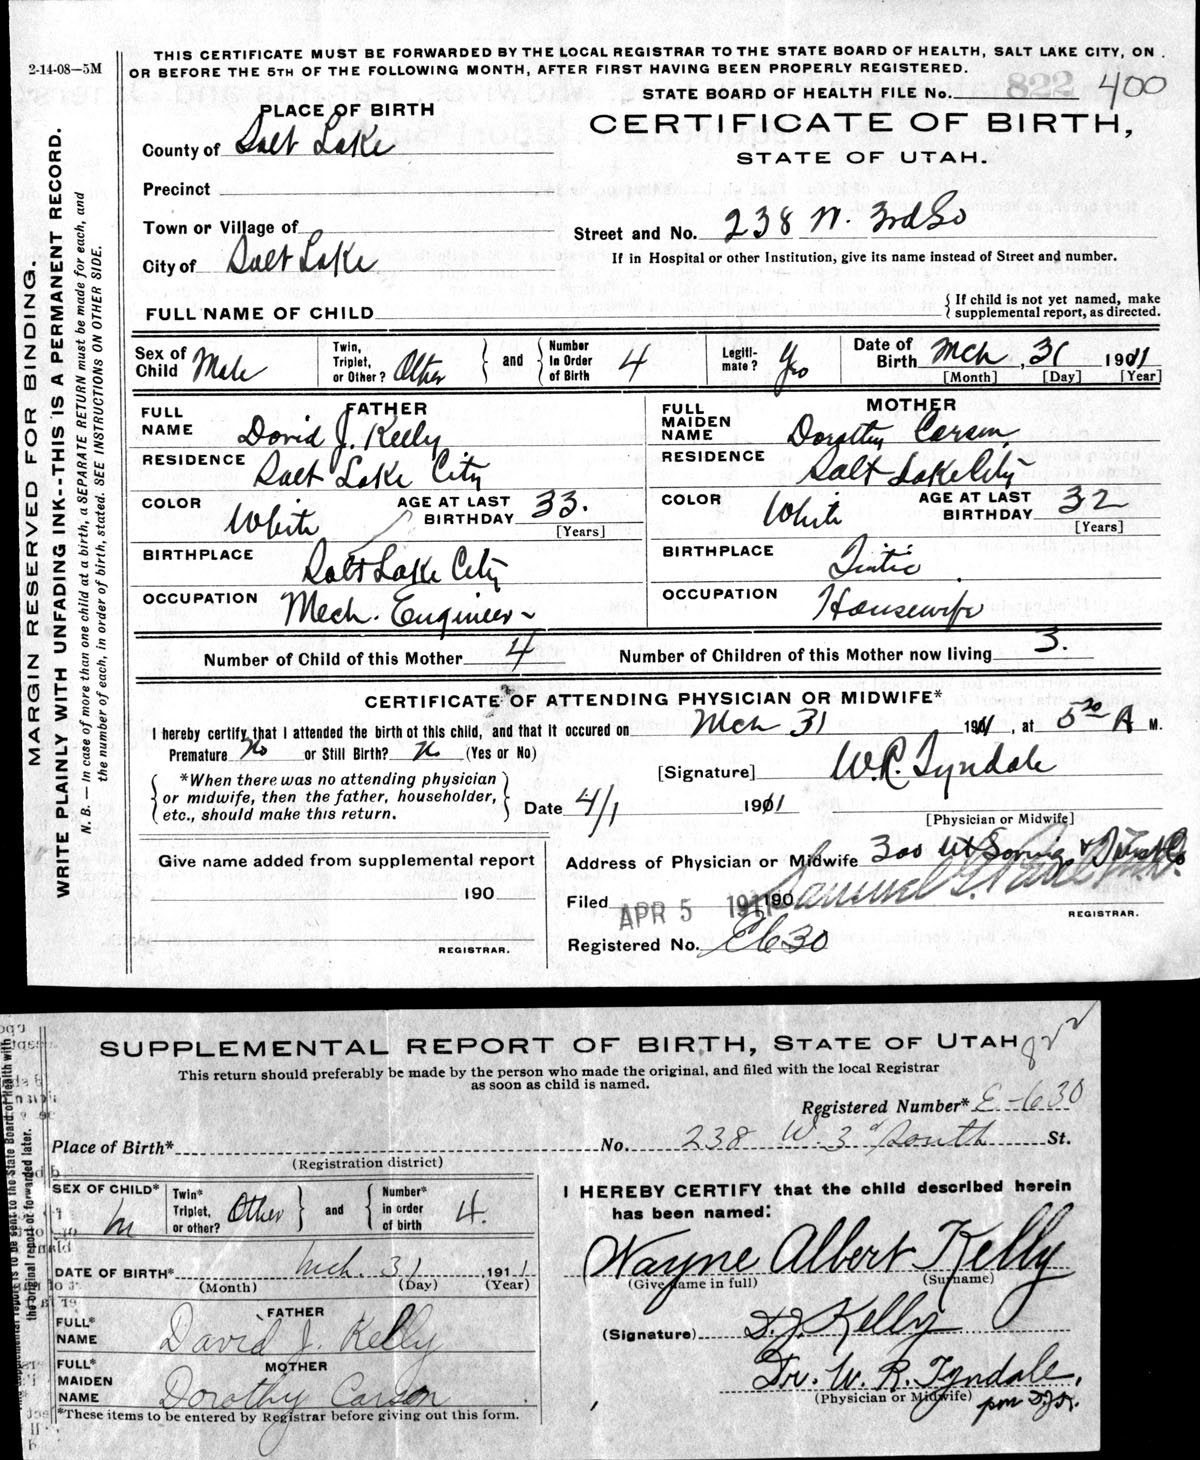 2-14-08—5M
THIS CERTIFICATE MUST BE FORWARDED BY THE LOCAL REGISTRAR TO THE STATE BOARD OF HEALTH, SALT LAKE CITY, ON
OR BEFORE THE 5TH OF THE FOLLOWING MONTH, AFTER FIRST HAVING BEEN PROPERLY REGISTERED.
STATE BOARD OF HEALTH FILE No. 822 400
MARGIN RESERVED FOR BINDING.
WRITE PLAINLY WITH UNFADING INK--THIS IS A PERMANENT RECORD.
N. B. — In case of more than one child at a birth, a SEPARATE RETURN must be made for each, and
the number of each, in order of birth, stated. SEE INSTRUCTIONS ON OTHER SIDE.
PLACE OF BIRTH
CERTIFICATE OF BIRTH,
STATE OF UTAH.
County of Salt Lake
Precinct
Town or Village of
Street and No. 238 W. 3rd So
City of Salt Lake
If in Hospital or other Institution, give its name instead of Street and number.
FULL NAME OF CHILD
{ If child is not yet named, make
supplemental report, as directed.
Sex of Child Male
Twin, Triplet, or Other? Other } and { Number in Order of Birth 4
Legiti-mate? Yes
Date of Birth Mch, 31 1911
[Month] [Day] [Year]
FATHER
FULL NAME David J. Kelly
RESIDENCE Salt Lake City
COLOR White AGE AT LAST BIRTHDAY 33.
[Years]
BIRTHPLACE Salt Lake City
OCCUPATION Mech. Engineer-
MOTHER
FULL MAIDEN NAME Dorothy Carson
RESIDENCE Salt Lake City
COLOR White AGE AT LAST BIRTHDAY 32
[Years]
BIRTHPLACE Tintic
OCCUPATION Housewife
Number of Child of this Mother 4 Number of Children of this Mother now living 3.
CERTIFICATE OF ATTENDING PHYSICIAN OR MIDWIFE*
I hereby certify that I attended the birth of this child, and that it occured on Mch 31 1911, at 5 30 A M.
Premature No or Still Birth? No (Yes or No)
*When there was no attending physician
or midwife, then the father, householder,
etc., should make this return.
[Signature] W.R. Tyndale
Date 4/1 1911
[Physician or Midwife]
Give name added from supplemental report
190
REGISTRAR.
Address of Physician or Midwife 300 Ut Savings & Trust Co
Filed APR 5 1911 190 Samuel G. Paul M.D.
REGISTRAR.
Registered No. E630
SUPPLEMENTAL REPORT OF BIRTH, STATE OF UTAH 822
This return should preferably be made by the person who made the original, and filed with the local Registrar
as soon as child is named.
Registered Number* E-630
Place of Birth* No. 238 W. 3d South St.
(Registration district)
SEX OF CHILD* M
Twin* Triplet, or other? Other } and { Number* in order of birth 4.
DATE OF BIRTH* Mch. 31 1911
(Month) (Day) (Year)
FATHER
FULL* NAME David J. Kelly
MOTHER
FULL* MAIDEN NAME Dorothy Carson
*These items to be entered by Registrar before giving out this form.
I HEREBY CERTIFY that the child described herein
has been named:
Wayne Albert Kelly
(Give name in full) (Surname)
(Signature) D.J. Kelly
Dr. W. R. Tyndale,
(Physician or Midwife)
the original report of forwarded later.